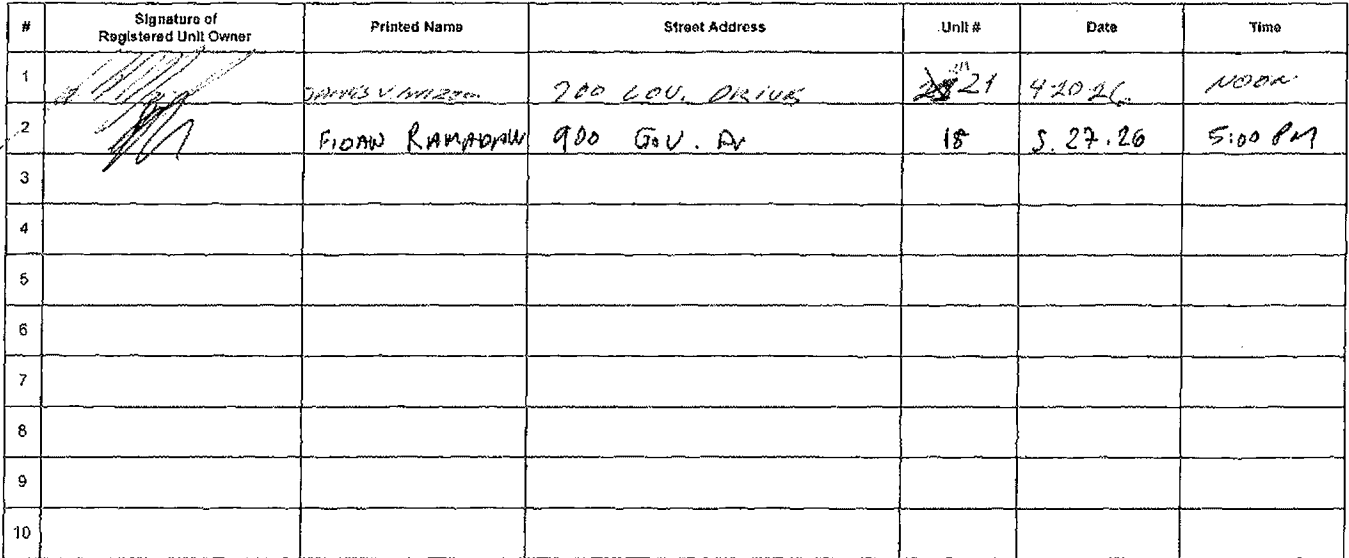 # Signature of Registered Unit Owner Printed Name Street Address Unit # Date Time
1 JAMES V. 700 GOV. DRIVE 21 4.20.26 NOON
2 FIDAN RAMADAN 900 GOV. Dr 18 5.27.26 5:00 PM
3
4
5
6
7
8
9
10